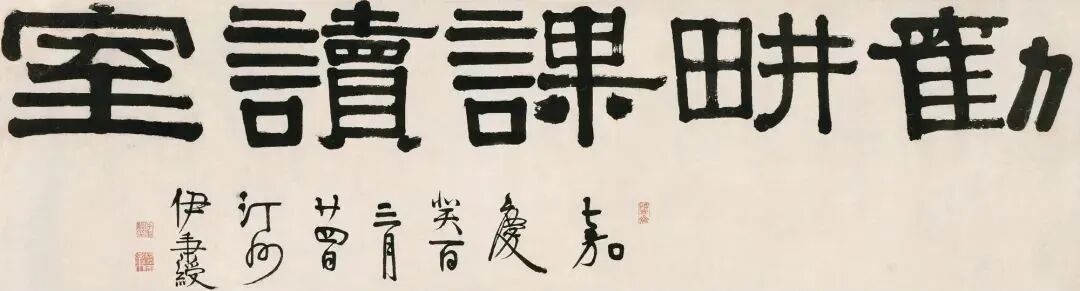 勸畊課讀室
嘉
慶
癸酉
二月
廿四日
汀州
伊秉綬